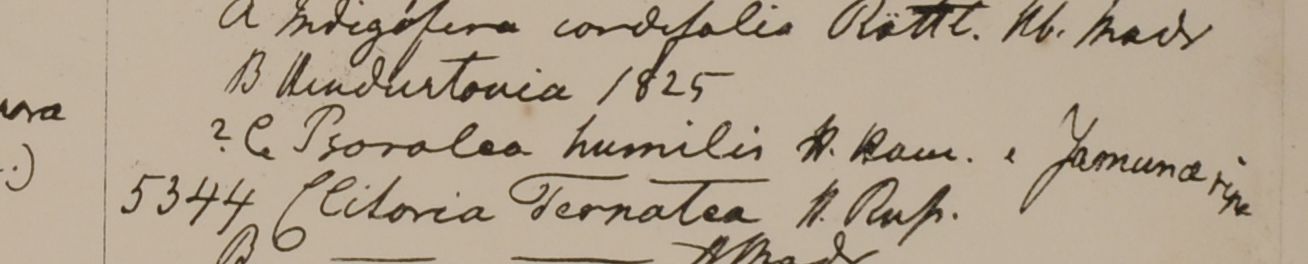 A Indigofera cordifolia Röttl. Hb. Madr
B Hindustonia 1825
? C. Psoralea humilis H. Ham. e Jamunæ ripa
5344 Clitoria Ternatea H. Rup.
B — — H Madr